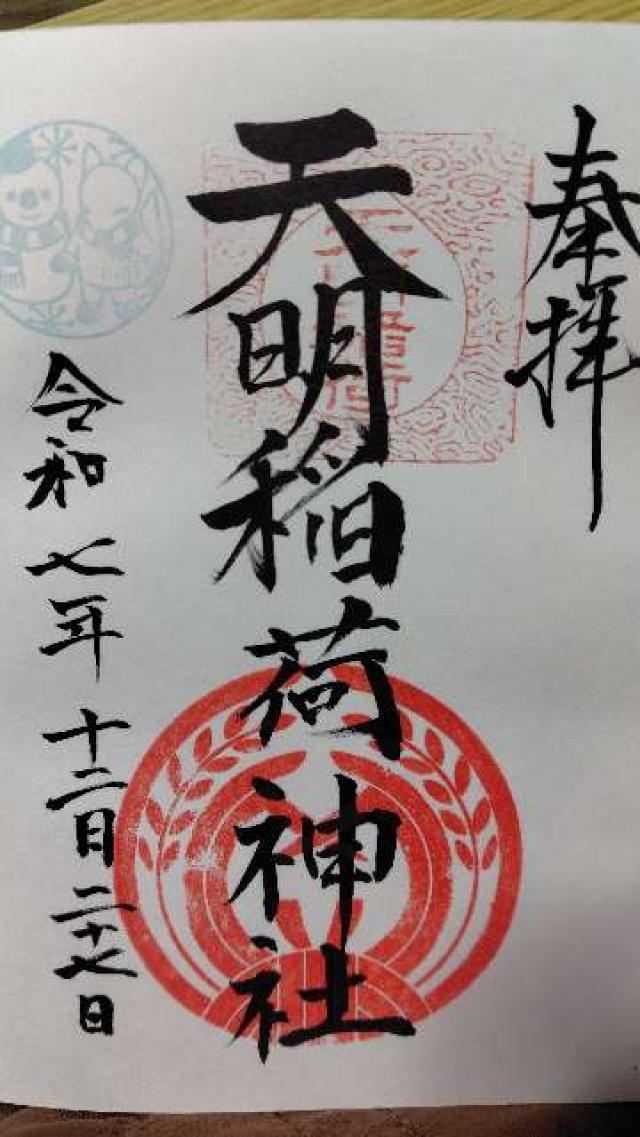 奉拝
天明稲荷神社
令和七年十二日二十七日